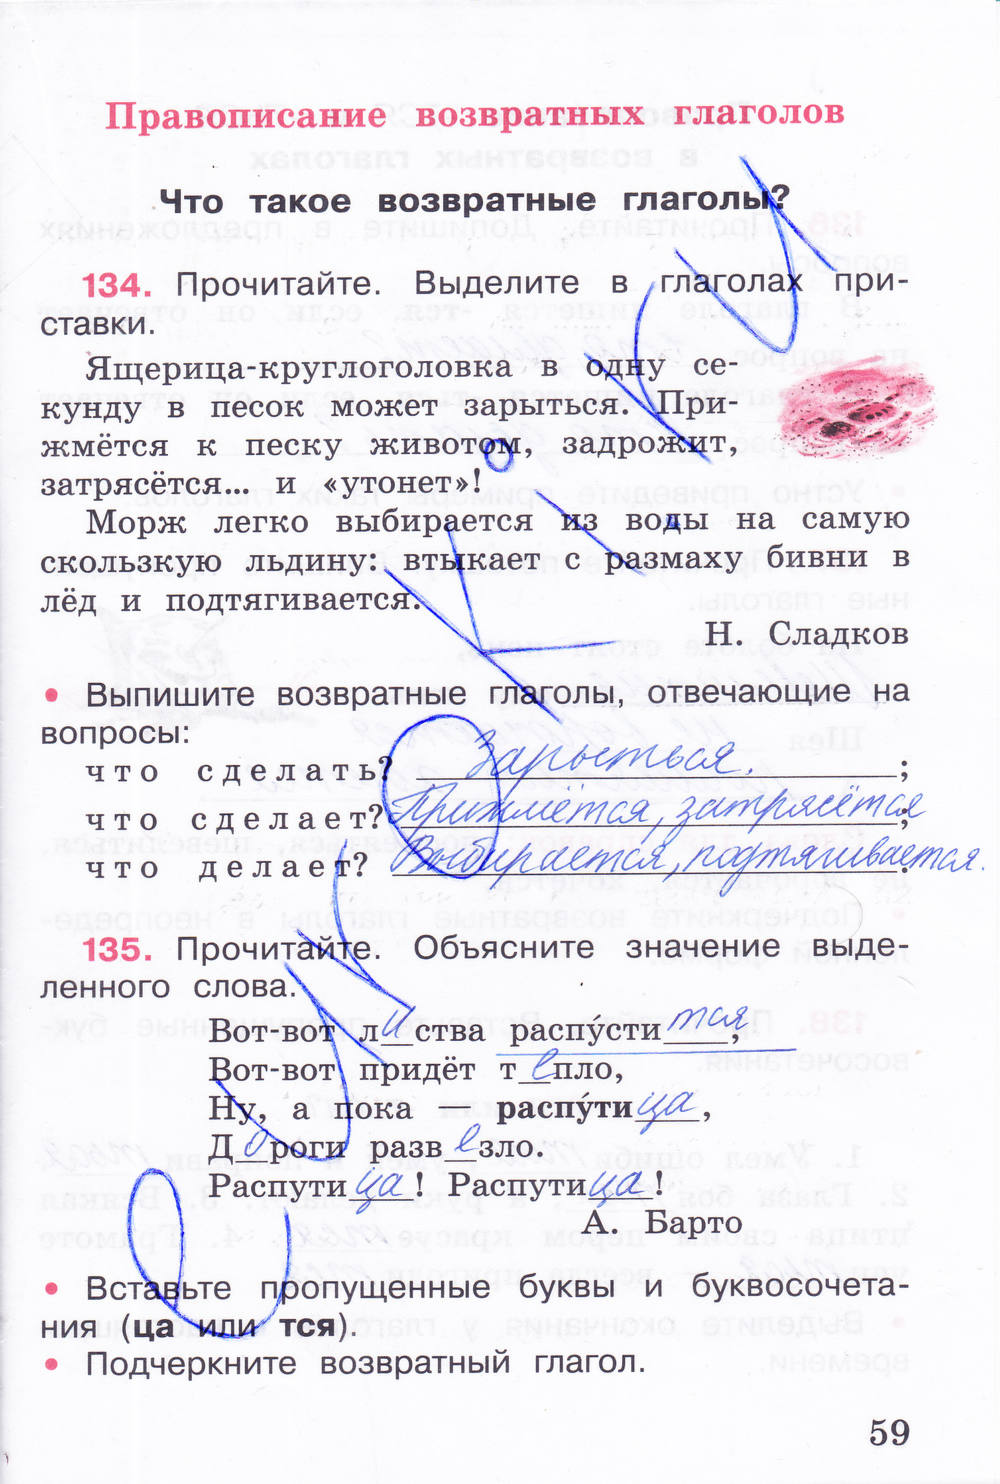 Правописание возвратных глаголов
Что такое возвратные глаголы?
134. Прочитайте. Выделите в глаголах при-
ставки.
Ящерица-круглоголовка в одну се-
кунду в песок может зарыться. При-
жмётся к песку животом, задрожит,
затрясётся... и «утонет»!
Морж легко выбирается из воды на самую
скользкую льдину: втыкает с размаху бивни в
лёд и подтягивается.
Н. Сладков
• Выпишите возвратные глаголы, отвечающие на
вопросы:
что сделать? Зарыться. ;
что сделает? Прижмётся, затрясётся ;
что делает? Выбирается, подтягивается.
135. Прочитайте. Объясните значение выде-
ленного слова.
Вот-вот листва распу́стится,
Вот-вот придёт тепло,
Ну, а пока — распу́тица,
Дороги развезло.
Распутица! Распутица!
А. Барто
• Вставьте пропущенные буквы и буквосочета-
ния (ца или тся).
• Подчеркните возвратный глагол.
59